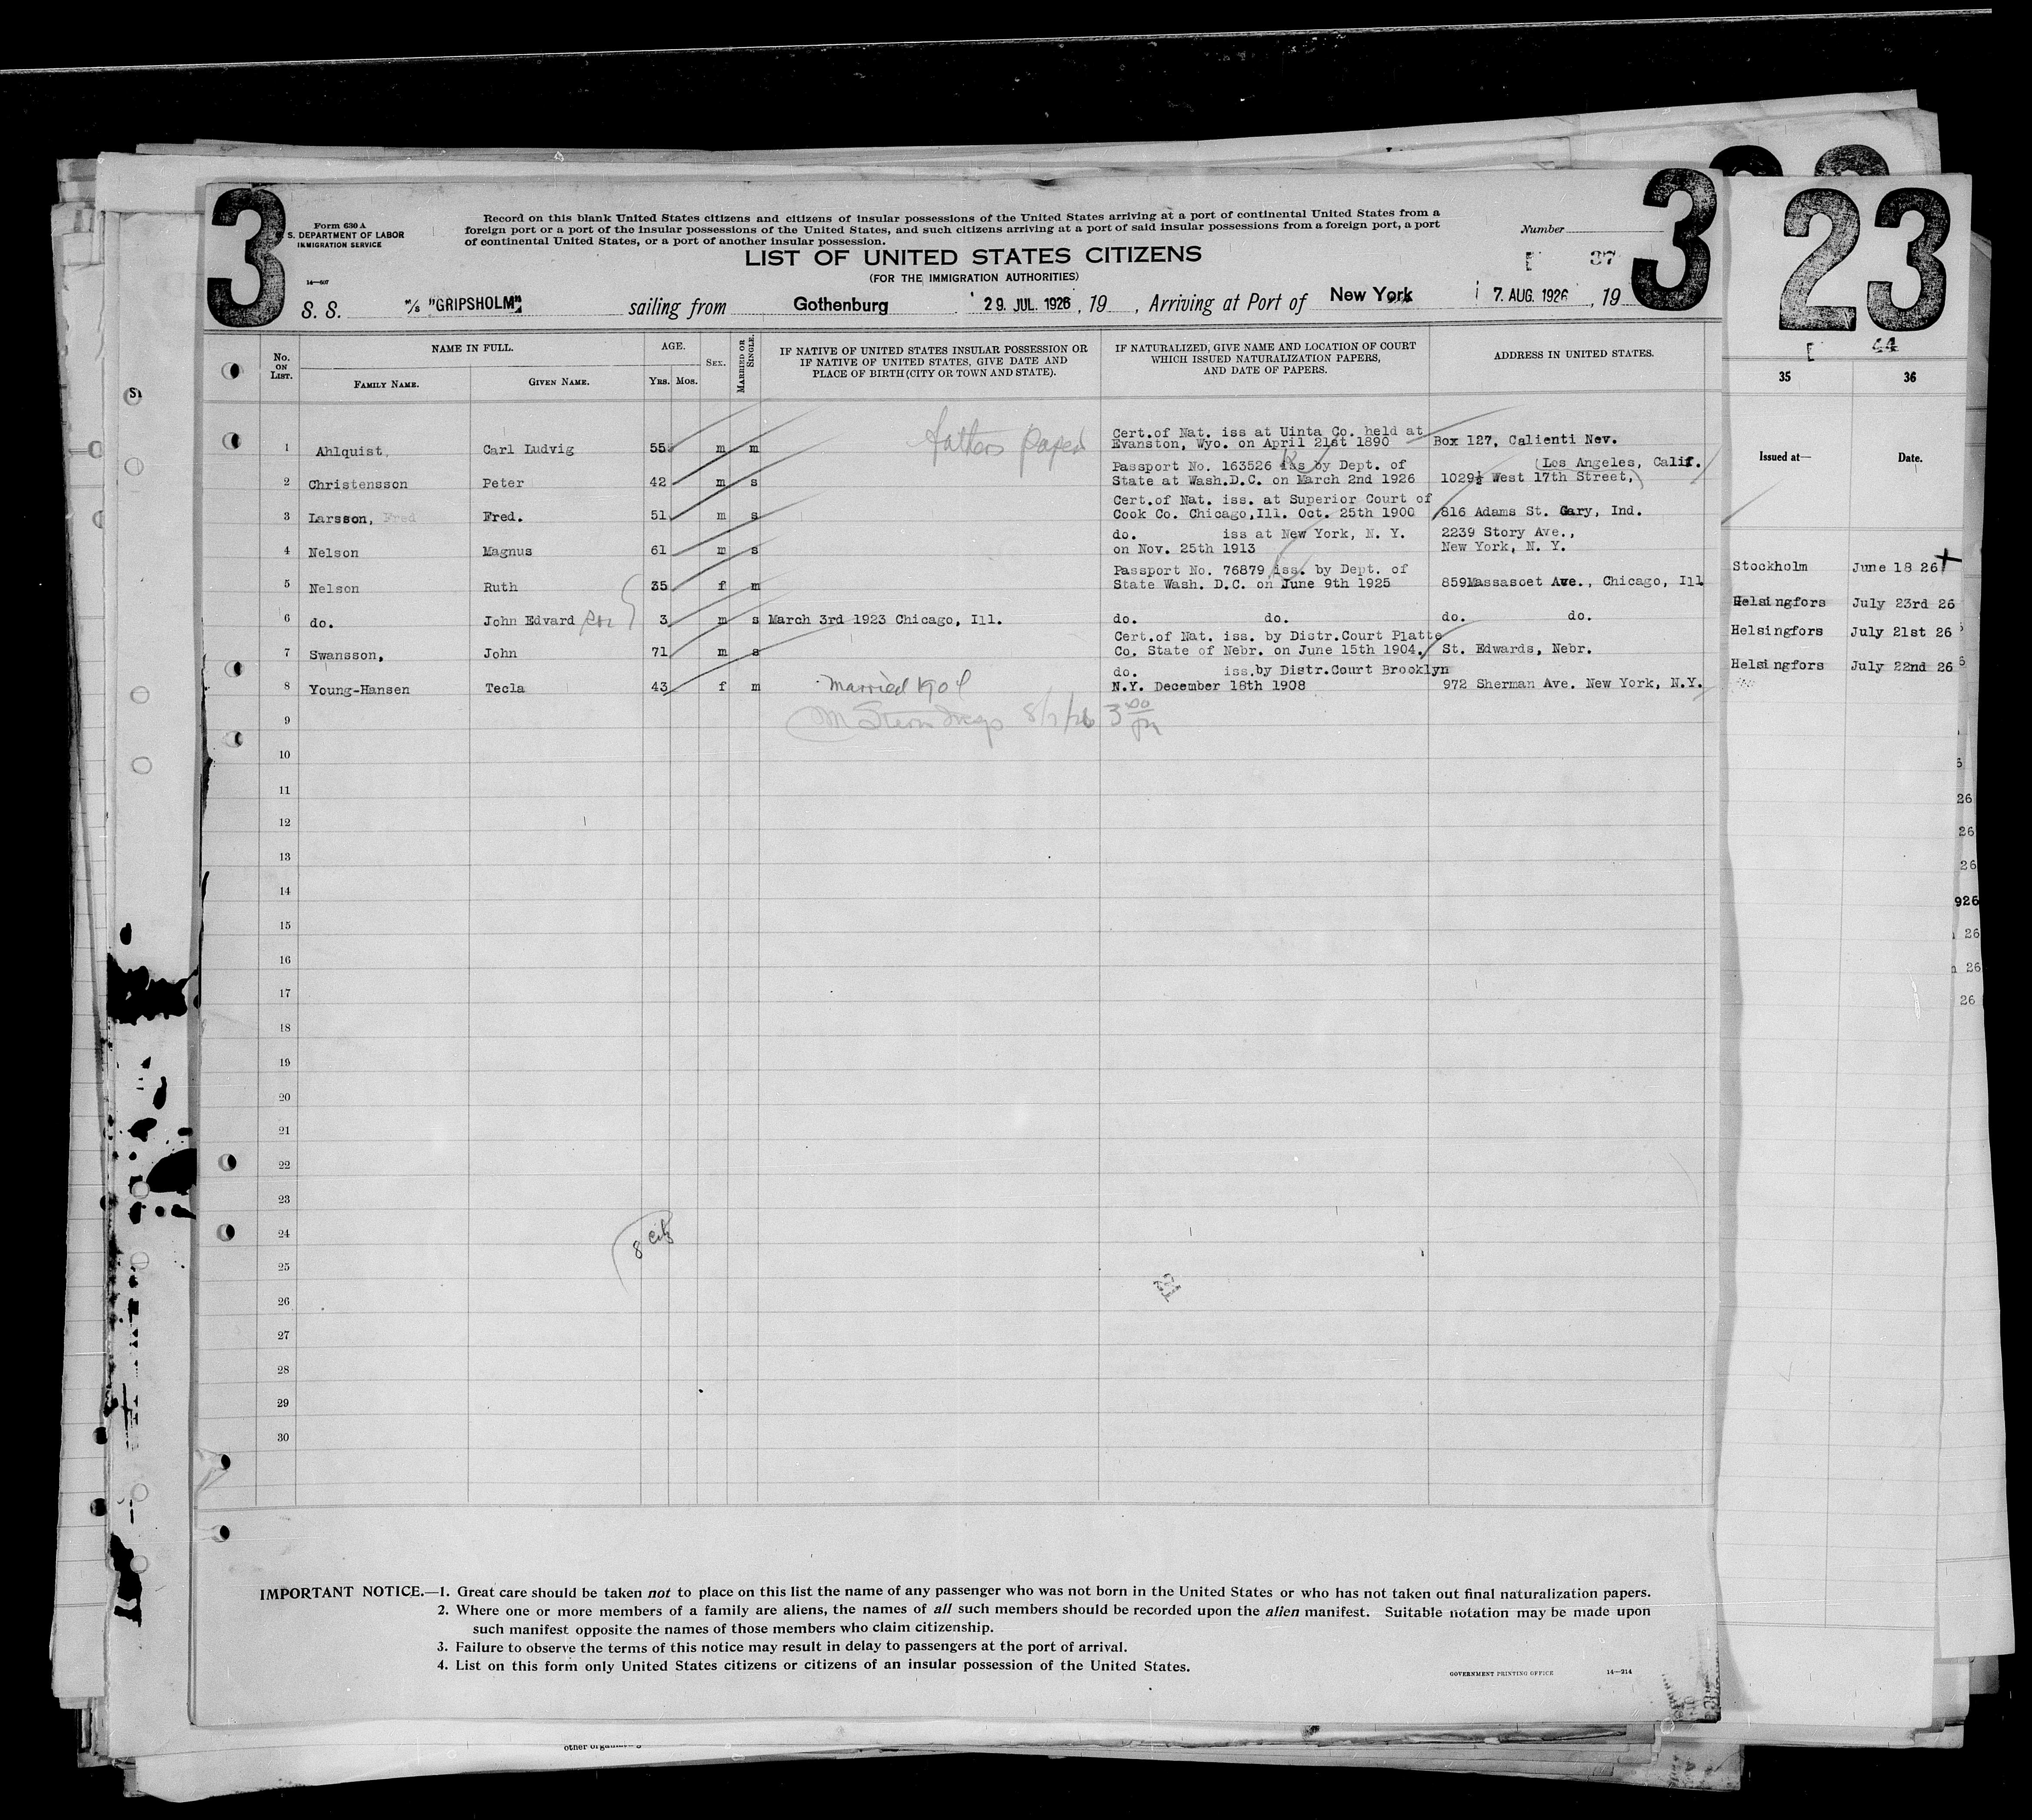 3
3
23
Form 630 A
S. DEPARTMENT OF LABOR
IMMIGRATION SERVICE
14—607
Record on this blank United States citizens and citizens of insular possessions of the United States arriving at a port of continental United States from a
foreign port or a port of the insular possessions of the United States, and such citizens arriving at a port of said insular possessions from a foreign port, a port
of continental United States, or a port of another insular possession.
Number
LIST OF UNITED STATES CITIZENS
(FOR THE IMMIGRATION AUTHORITIES)
37
S. S. M/S "GRIPSHOLM" sailing from Gothenburg 29. JUL. 1926, 19 , Arriving at Port of New York 7. AUG. 1926, 19
44
No. ON LIST.
NAME IN FULL.
FAMILY NAME.
GIVEN NAME.
AGE.
YRS. MOS.
SEX.
MARRIED OR SINGLE.
IF NATIVE OF UNITED STATES INSULAR POSSESSION OR
IF NATIVE OF UNITED STATES, GIVE DATE AND
PLACE OF BIRTH (CITY OR TOWN AND STATE).
IF NATURALIZED, GIVE NAME AND LOCATION OF COURT
WHICH ISSUED NATURALIZATION PAPERS,
AND DATE OF PAPERS.
ADDRESS IN UNITED STATES.
35 36
Issued at— Date.
fathers papers
Cert.of Nat. iss at Uinta Co. held at
1 Ahlquist, Carl Ludvig 55 m m Evanston, Wyo. on April 21st 1890 Box 127, Calienti Nev.
Passport No. 163526 iss by Dept. of (Los Angeles, Calif.
2 Christensson Peter 42 m s State at Wash.D.C. on March 2nd 1926 1029½ West 17th Street,
Cert.of Nat. iss. at Superior Court of
3 Larsson, Fred Fred. 51 m s Cook Co. Chicago,Ill. Oct. 25th 1900 816 Adams St. Gary, Ind.
do. iss at New York, N. Y. 2239 Story Ave.,
4 Nelson Magnus 61 m s on Nov. 25th 1913 New York, N. Y.
Passport No. 76879 iss. by Dept. of
5 Nelson Ruth 35 f m State Wash. D.C. on June 9th 1925 859Massasoet Ave., Chicago, Ill
6 do. John Edvard son 3 m s March 3rd 1923 Chicago, Ill. do. do. do. do.
Cert.of Nat. iss. by Distr.Court Platte
7 Swansson, John 71 m s Co. State of Nebr. on June 15th 1904. St. Edwards, Nebr.
do. iss.by Distr.Court Brooklyn
8 Young-Hansen Tecla 43 f m Married 1904 N.Y. December 18th 1908 972 Sherman Ave. New York, N.Y.
8/7/26 3 00 pm
9
10
11
12
13
14
15
16
17
18
19
20
21
22
23
24
25
26
27
28
29
30
8 cits
Stockholm June 18 26
Helsingfors July 23rd 26
Helsingfors July 21st 26
Helsingfors July 22nd 26
26
26
26
926
26
26
26
IMPORTANT NOTICE.—1. Great care should be taken not to place on this list the name of any passenger who was not born in the United States or who has not taken out final naturalization papers.
2. Where one or more members of a family are aliens, the names of all such members should be recorded upon the alien manifest. Suitable notation may be made upon
such manifest opposite the names of those members who claim citizenship.
3. Failure to observe the terms of this notice may result in delay to passengers at the port of arrival.
4. List on this form only United States citizens or citizens of an insular possession of the United States.
GOVERNMENT PRINTING OFFICE 14—214